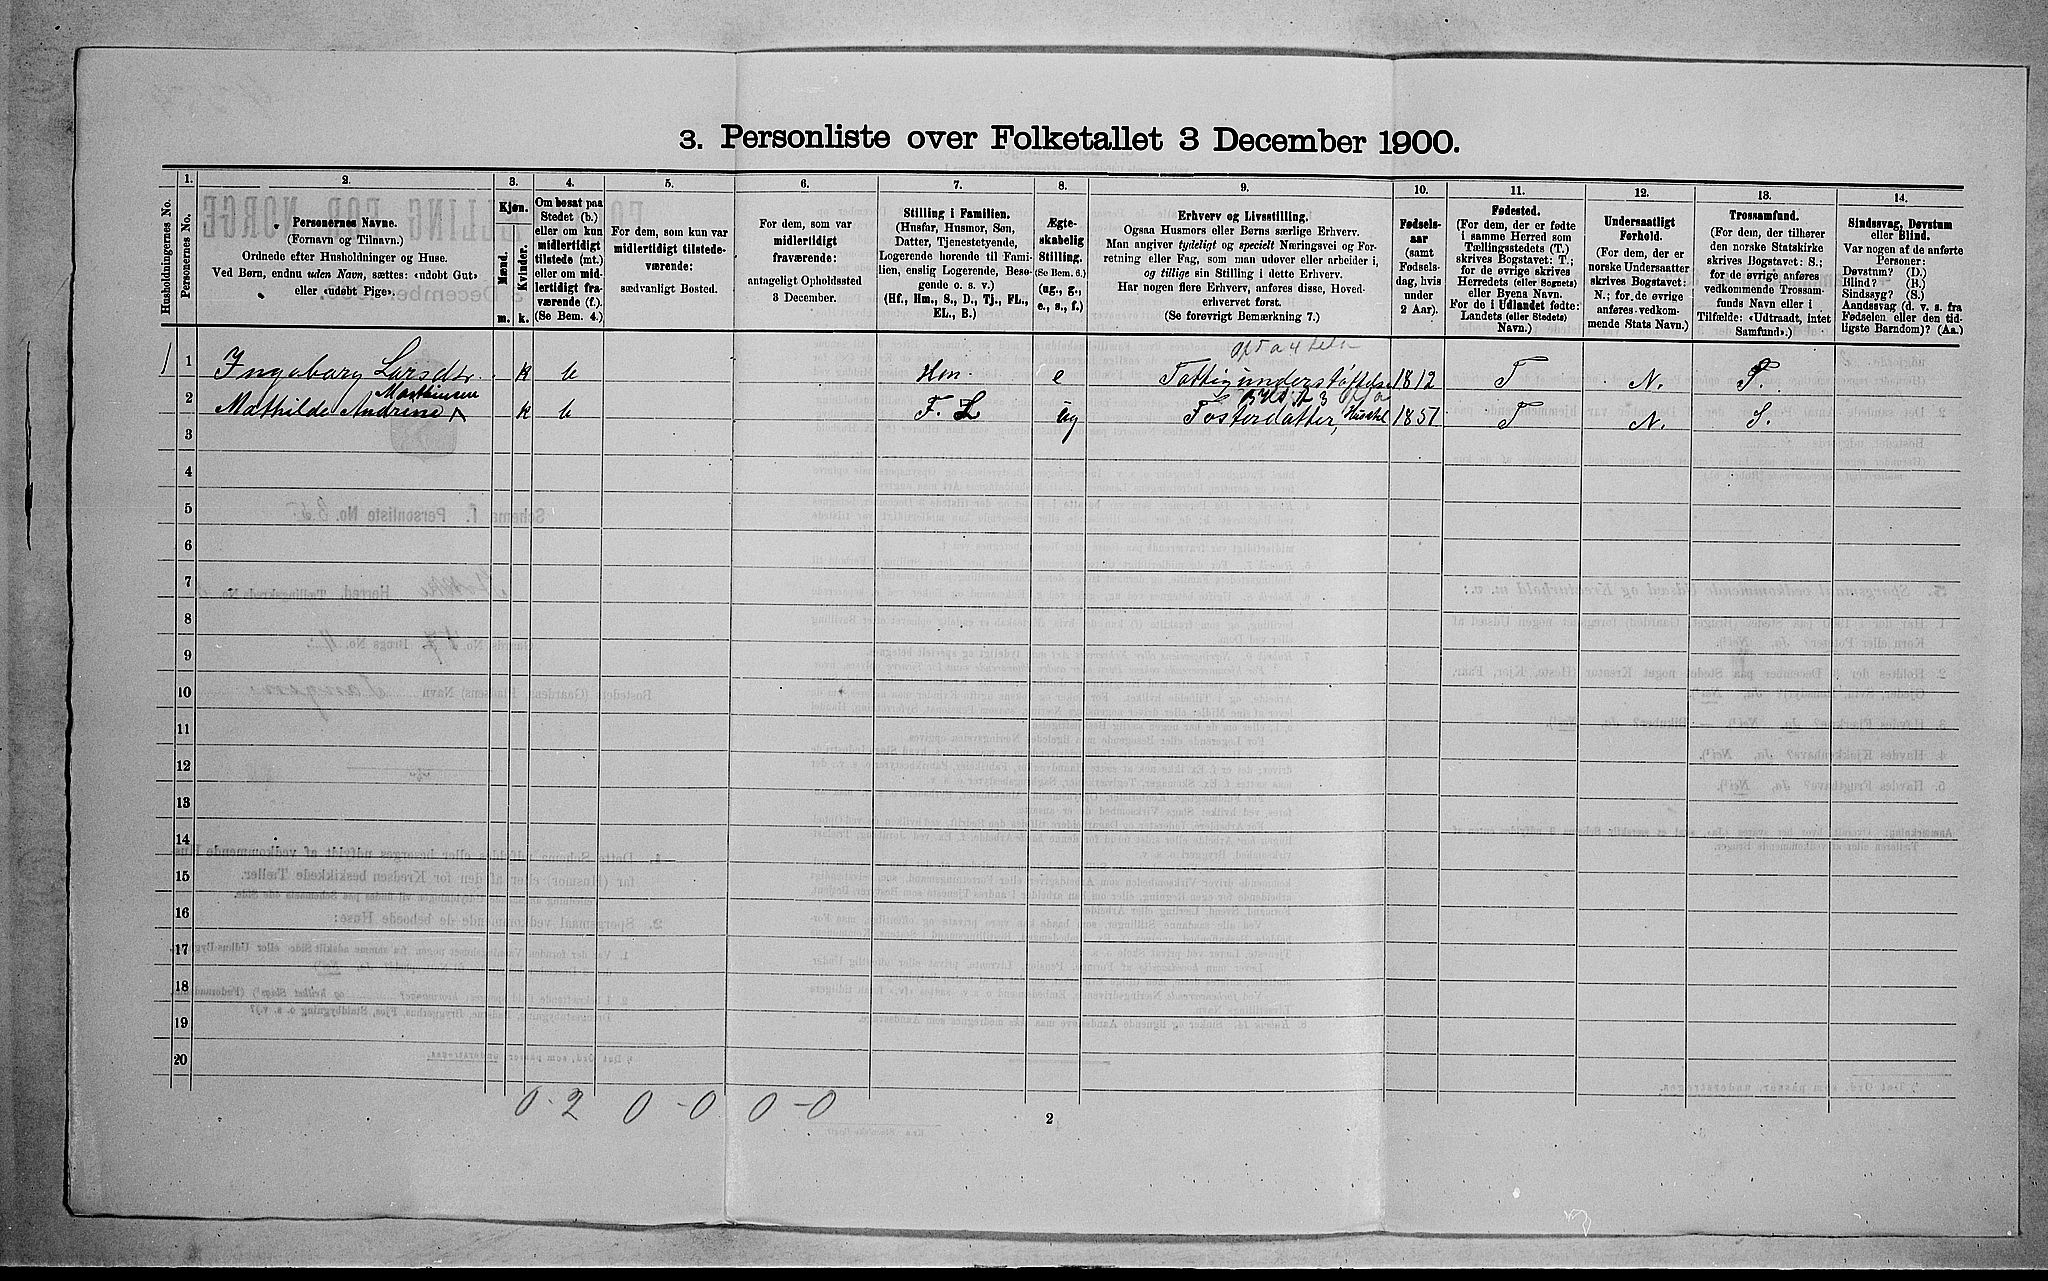 3. Personliste over Folketallet 3 December 1900.
1.
Husholdningernes No.
Personernes No.
2.
Personernes Navne.
(Fornavn og Tilnavn.)
Ordnede efter Husholdninger og Huse.
Ved Børn, endnu uden Navn, sættes: «udøbt Gut»
eller «udøbt Pige».
3.
Kjøn.
Mænd.
Kvinder.
m. k.
4.
Om bosat paa
Stedet (b.)
eller om kun
midlertidigt
tilstede (mt.)
eller om mid-
lertidigt fra-
værende (f.)
(Se Bem. 4.)
5.
For dem, som kun var
midlertidigt tilstede-
værende:
sædvanligt Bosted.
6.
For dem, som var
midlertidigt
fraværende:
antageligt Opholdssted
3 December.
7.
Stilling i Familien.
(Husfar, Husmor, Søn,
Datter, Tjenestetyende,
Logerende hørende til Fami-
lien, enslig Logerende, Besø-
gende o. s. v.)
(Hf., Hm., S., D., Tj., FL.,
EL., B.)
8.
Ægte-
skabelig
Stilling.
(Se Bem. 6.)
(ug., g.,
e., s., f.)
9.
Erhverv og Livsstilling.
Ogsaa Husmors eller Børns særlige Erhverv.
Man angiver tydeligt og specielt Næringsvei og For-
retning eller Fag, som man udøver eller arbeider i,
og tillige sin Stilling i dette Erhverv.
Har nogen flere Erhverv, anføres disse, Hoved-
erhvervet først.
(Se forøvrigt Bemærkning 7.)
10.
Fødsels-
aar
(samt
Fødsels-
dag, hvis
under
2 Aar).
11.
Fødested.
(For dem, der er fødte
i samme Herred som
Tællingsstedets (T.)
skrives Bogstavet: T.;
for de øvrige skrives
Herredets (eller Sognets)
eller Byens Navn.
For de i Udlandet fødte:
Landets (eller Stedets)
Navn.)
12.
Undersaatligt
Forhold.
(For dem, der er
norske Undersaatter
skrives Bogstavet:
N.; for de øvrige
anføres vedkom-
mende Stats Navn.)
13.
Trossamfund.
(For dem, der tilhører
den norske Statskirke
skrives Bogstavet: S.;
for de øvrige anføres
vedkommende Trossam-
funds Navn eller i
Tilfælde: «Udtraadt, intet
Samfund».)
14.
Sindssvag, Døvstum
eller Blind.
Var nogen af de anførte
Personer:
Døvstum? (D.)
Blind? (B.)
Sindssyg? (S.)
Aandssvag (d. v. s. fra
Fødselen eller den tid-
ligste Barndom)? (Aa.)
1 1 Ingeborg Larsdtr. k b Hm. e Fattigunderstøttelse 1812 T N. S.
Mathinsen
2 Mathilde Andrine k b F. L ug Fosterdatter, 1851 T N. S.
3
4
5
6
7
8
9
10
11
12
13
14
15
16
17
18
19
20
0 - 2 0 - 0 0 - 0
2